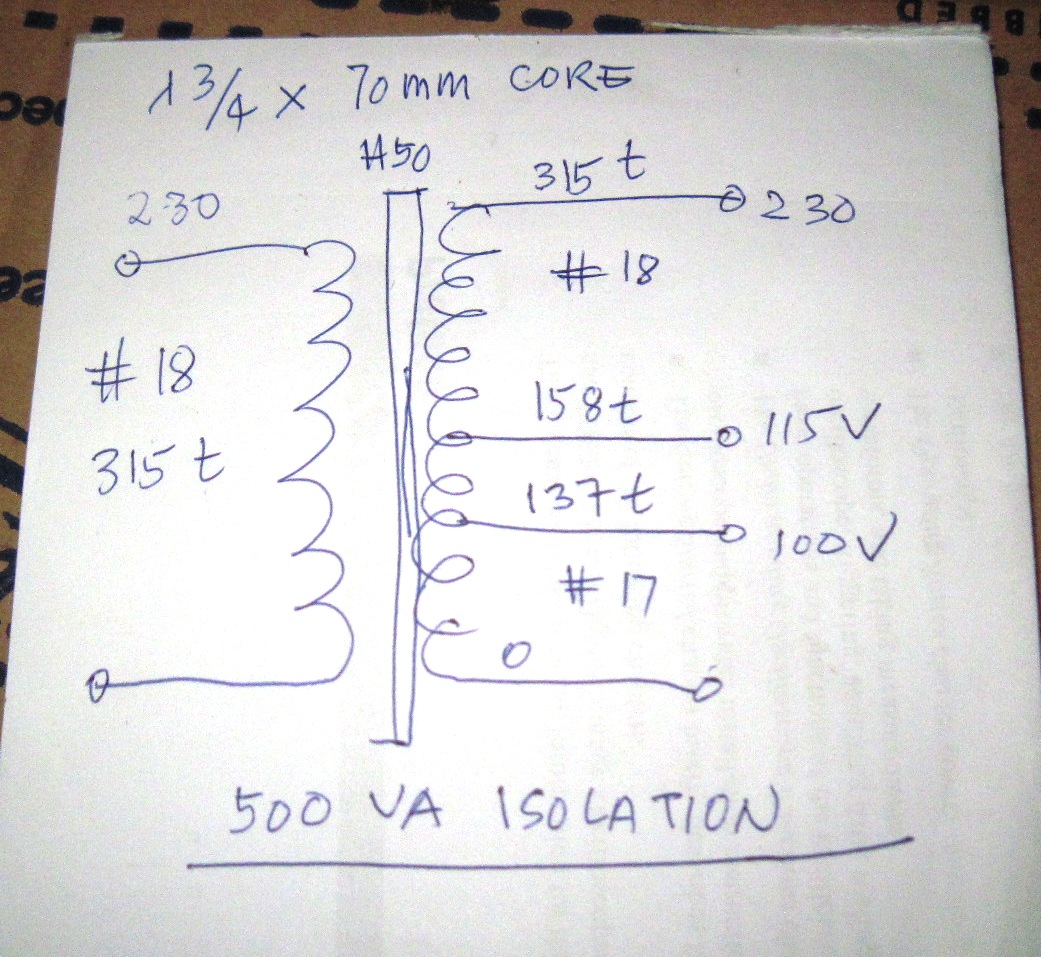 1 3/4 x 70mm CORE
H50
315 t
230
230
# 18
# 18
315 t
158t
115V
137t
100V
# 17
0
500 VA ISOLATION